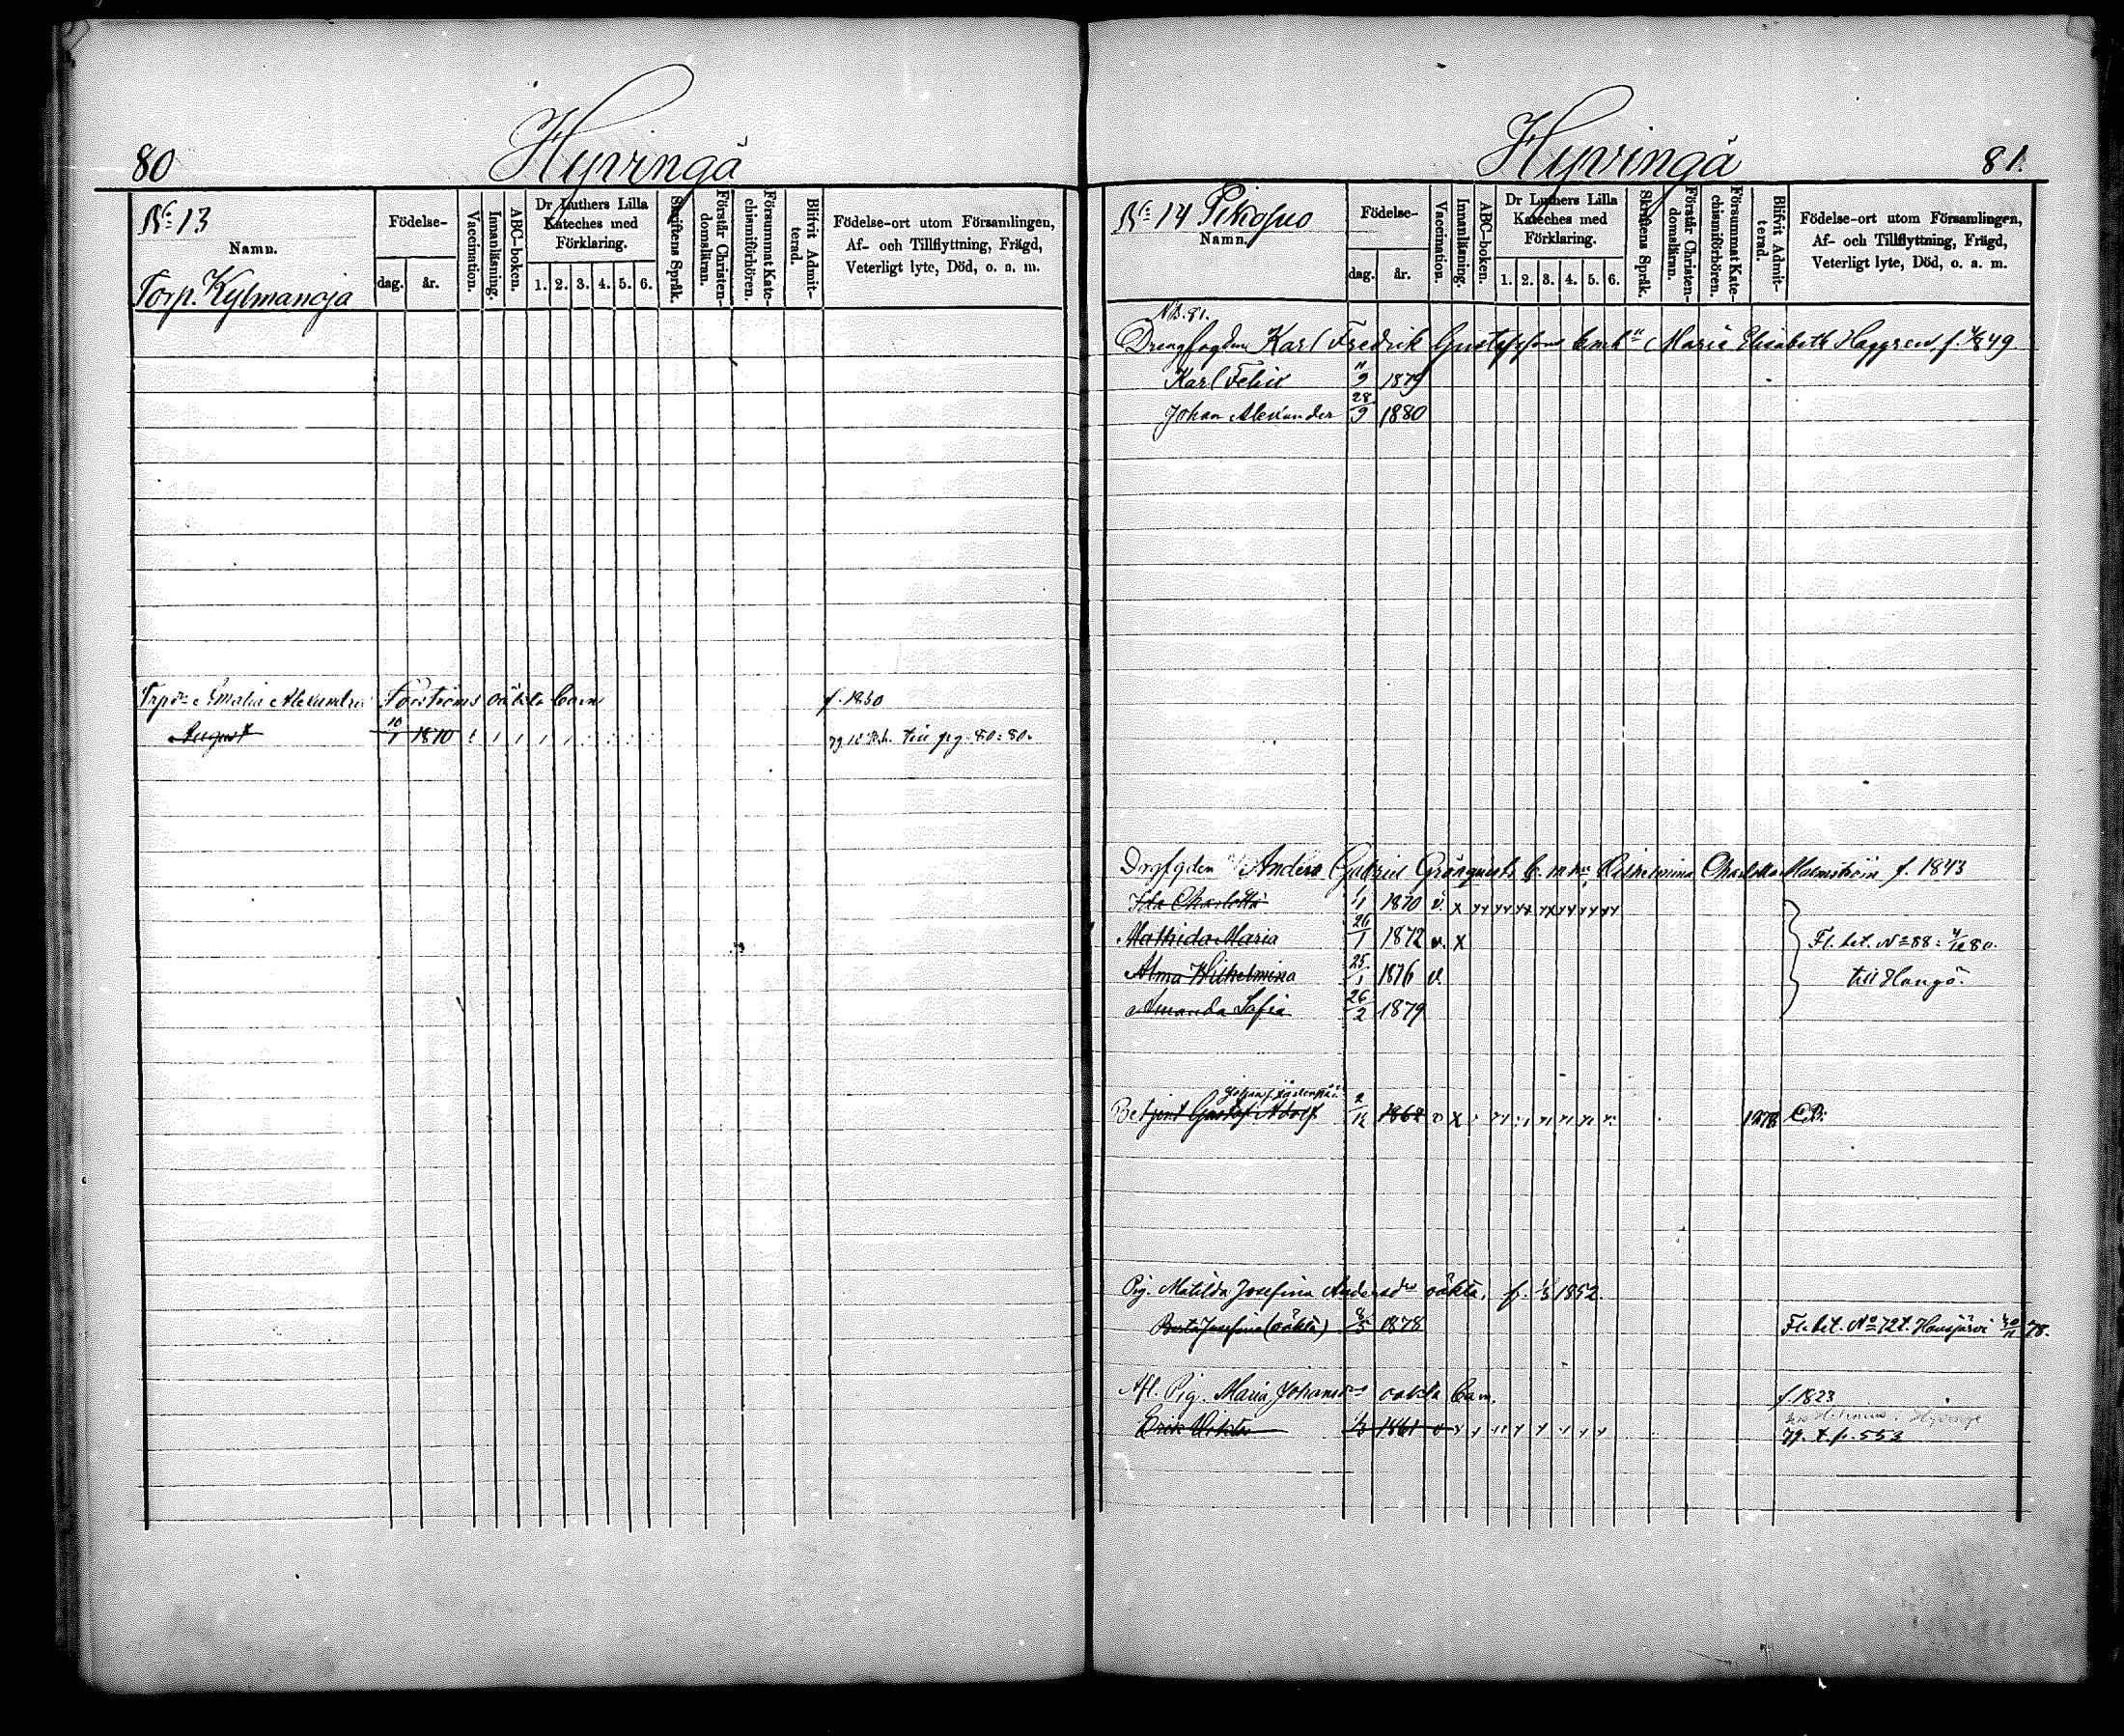 80
Hyvingä
No 13
Namn.
Torp. Kylmänoja
Födelse-
dag.
år.
Vaccination.
Innanläsning.
ABC-boken.
Dr Luthers Lilla
Kateches med
Förklaring.
1. 2. 3. 4. 5. 6.
Skriftens Språk.
Förstår Christen-
domsläran.
Försummat Kate-
chismiförhören.
Blifvit Admit-
terad.
Födelse-ort utom Församlingen,
Af- och Tillflyttning, Frägd,
Veterligt lyte, Död, o. a. m.
Amalia Alexandra oäkta barn f. 1850
August 10/1 1870 till pg. 80:80.
Hyvingä
81.
No 14 Pikosuo
Namn.
Födelse-
dag.
år.
Vaccination.
Innanläsning.
ABC-boken.
Dr Luthers Lilla
Kateches med
Förklaring.
1. 2. 3. 4. 5. 6.
Skriftens Språk.
Förstår Christen-
domsläran.
Försummat Kate-
chismiförhören.
Blifvit Admit-
terad.
Födelse-ort utom Församlingen,
Af- och Tillflyttning, Frägd,
Veterligt lyte, Död, o. a. m.
Drengfogden Karl Fredrik Gustafssons Maria Elisabeth Haggren f. 49
Karl Felix 11/9 1879
Johan Alexander 28/9 1880
Anders Gabriel Grönqvists b. m. h. Wilhelmina Charlotta Malmström f. 1843
Ida Charlotta 1870 v. x
Mathilda Maria 26/1 1872 v. x Fl. bet. No 88: 80.
Alma Wilhelmina 25/1 1876 v. till Hangö.
Amanda Sofia 26/2 1879
Betjent Gustaf Adolf 2/12 1862 v x
Pig. Matilda Josefina Andersdr oäkta, f. 1852.
Berta Josefina (oäkta) 1878 Fl. bet. No 72 t. Hausjärvi 78.
Afl. Pig. Maria Johansdr oäkta barn. f. 1823
Erik Viktor 1861 v
79. t. p. 553